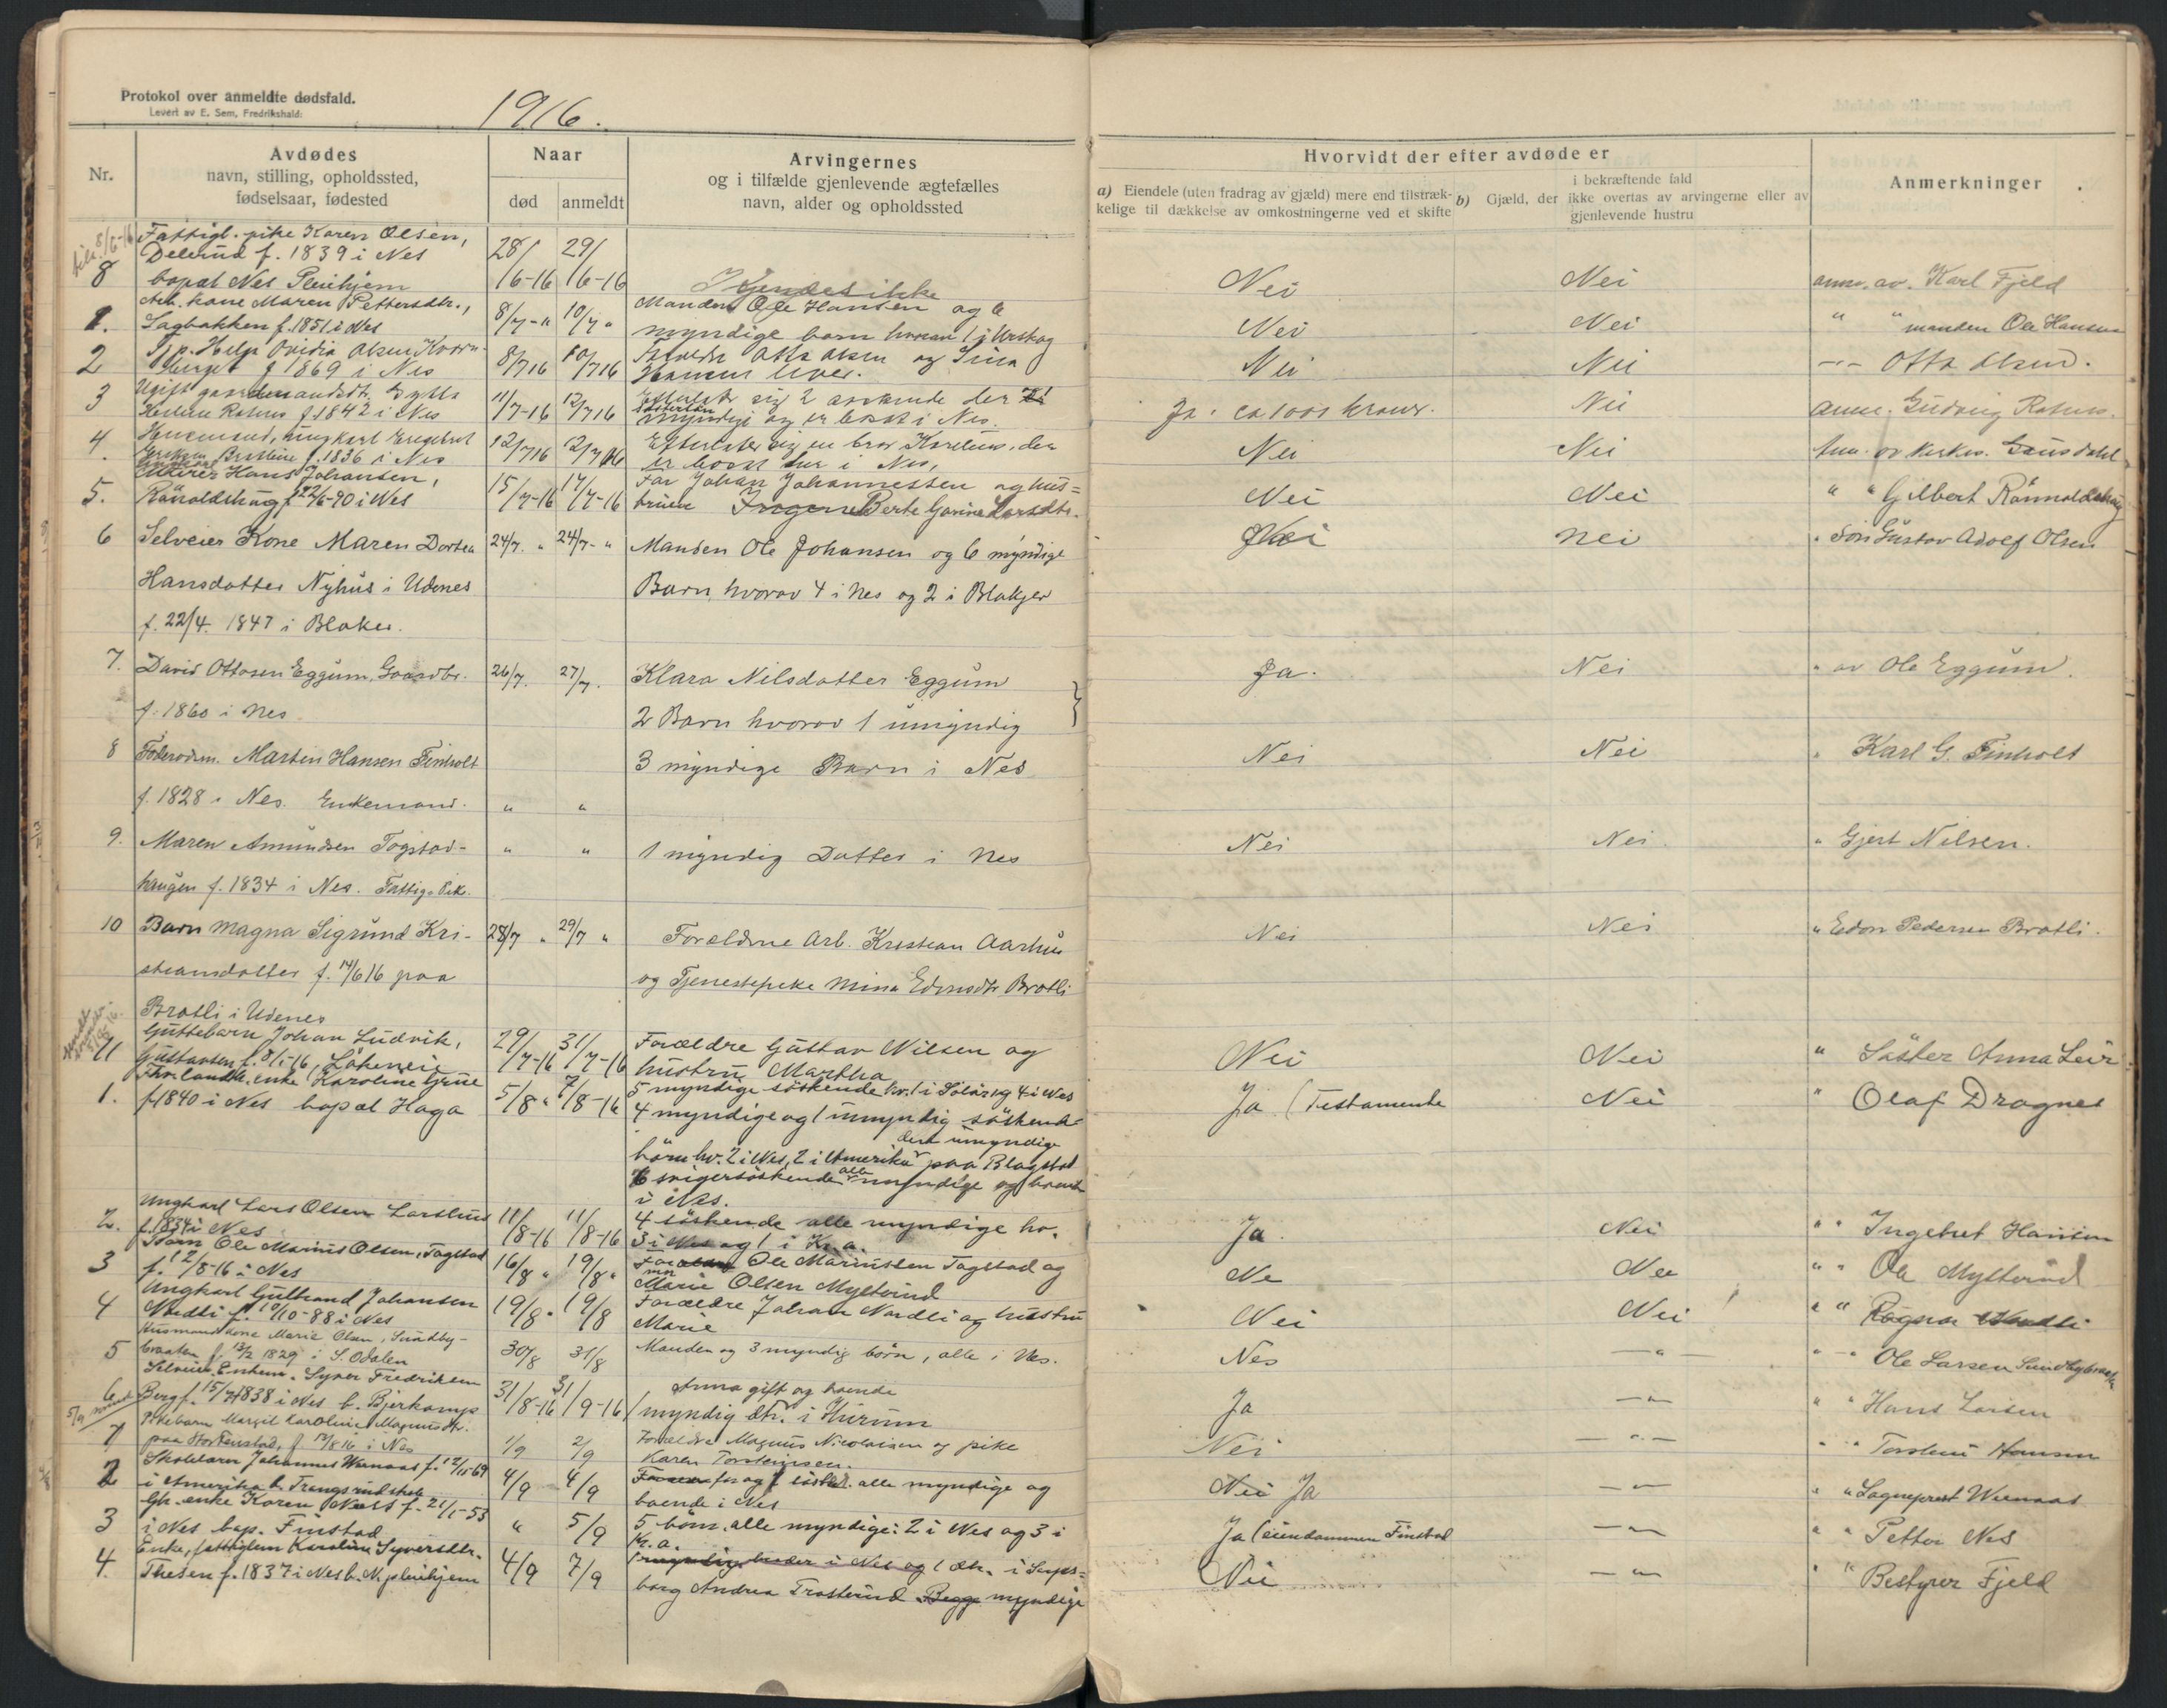 Protokol over anmeldte dødsfald.
Levert av E. Sem, Fredrikshald:
1916.
Nr.
Avdødes
navn, stilling, opholdssted,
fødselsaar, fødested
Naar
død
anmeldt
Arvingernes
og i tilfælde gjenlevende ægtefælles
navn, alder og opholdssted
Hvorvidt der efter avdøde er
a) Eiendele (uten fradrag av gjæld) mere end tilstræk-
kelige til dækkelse av omkostningerne ved et skifte
b) Gjæld, der i bekræftende fald ikke overtas av arvingerne eller av gjenlevende hustru
Anmerkninger
8 Fattigl. pike Karen Olsen,
Delerud f. 1839 i Nes
bopæl Nes Pleiehjem
28/6-16 29/6-16
Kjendes ikke
Nei Nei anm. av. Karl Fjeld
1. Arb. kone Maren Pettersdtr.,
Sagbakken f. 1851 i Nes
8/7-" 10/7 "
Manden Ole Hansen og 6
myndige barn hvorav 1 i Urskog
Nei Nei " " manden Ole Hansen
2 Helga Ovidia Olsen Kvern-
berget f 1869 i Nes
8/7 16 10/7 16
Forældr Otto Olsen og
Hansen lever.
Nei Nei -"- Otto Olsen.
3 Ugift
f. 1842 i Nes
11/7-16 12/7 16
Efterlader sig 2 søskende der
myndige og er bosat i Nes.
Ja. ca 1000 kroner. Nei
4. ungkarl Engebret
f. 1836 i Nes
12/7 16 12/7 16
Efterlater sig en bror Karelius, der
er bosat her i Nes,
Nei Nei
5. Hans Johansen,
f 22/6-90 i Nes
15/7-16 17/7-16
Far Johan Johannessen og hus=
truen Berte Gorine Larsdtr.
Nei Nei " " Gilbert
6 Selveier Kone Maren Dortea
Hansdatter Nyhus i Udenes
f. 22/4. 1847 i Blaker.
24/7. " 24/7- "
Manden Ole Johansen og 6 myndige
Barn hvorav 4 i Nes og 2 i Blakjer
Nei Nei " Søn Gustav Adolf Olsen
7. David Ottosen Eggum, Gaardbr.
f. 1860 i Nes
26/7. 27/7.
Klara Nilsdatter Eggum
2 Barn hvorav 1 umyndig
Ja. Nei " av Ole Eggum.
8 Føderodsm. Martin Hansen Finholt
f. 1828 i Nes. Enkemand.
" "
3 myndige Barn i Nes
Nei Nei " Karl G. Finholt
9. Maren Amundsen Togstad-
haugen f. 1834 i Nes. Fattig. Pik.
" "
1 myndig Datter i Nes
Nei Nei. " Gjert Nilsen.
10 Barn Magna Sigrund Kri-
stiansdatter f. 14/6 16 paa
Brotli i Udenes
28/7 " 29/7 "
Forældrene Arb. Kristian Aarhus
og Tjenestepike Mina Edvnsdtr Brotli
Nei Nei " Edon Pedersen Brotli.
11 Guttebarn Johan Ludvik,
Gustavsen
29/7-16 31/7-16
Forældre Gustav Nilsen og
hustru Martha
Nei Nei " Søster Anna Leir
1. enke Karoline Grue
f. 1840 i Nes bopæl Haga
5/8 " 7/8-16
5 myndige søskende hv. 1 i Solør og 4 i Nes
4 myndige og 1 umyndig søskende-
den umyndige
børn hv. 2 i Nes, 2 i Amerika paa Blagstad
6 svigersøskende alle myndige og boende
i Nes.
Ja (Testamente Nei " Olaf Dragnes
2. Ungkarl Lars Olsen Larshus
f. 1834 i Nes
11/8-16 11/8-16
4 søskende alle myndige hv.
3 i Nes og 1 i Kr.a.
Ja Nei " " Ingebret Hansen
3 Barn Ole Marius Olsen, Togstad
f. 12/8-16 i Nes
16/8 " 19/8 "
Ole Mariussen Togstad og
Marie Olsen Mylterud
Nei " " Ole Mylterud
4 Ungkarl Gulbrand Johansen
Nordli f. 10/10-88 i Nes
19/8 " 19/8
Forældre Johan Nordli og hustru
Marie
Nei Nei " " Ragna Nordli
5 Husmandskone Marie Olsen, Sundby-
braaten f. 13/2 1829 i S. Odalen
30/8 31/8
Manden og 3 myndig børn, alle i Nes.
-"- " " Ole Larsen Sundbybraaten
6 Selveier Enkem. Syver Fredriksen
Berg f. 15/7 1838 i Nes b. Bjerkamp
31/8-16 31/9-16
Anna gift og boende
1 myndig dtr. i Hurum
Ja -"- " " Hans Larsen
1 Pikebarn Margit Karoline Magnusdtr.
f 13/8 16 i Nes
1/9 2/9
Forældre Magnus Nicolaisen og pike
Karen Torsteinsen.
Nei -"- " " Hansen
2 Skolelærer Johannes f. 12/11-69
i Amerika b. Trangsrud skole
4/9 4/9
alle myndige og
boende i Nes
Nei Ja -"- " " Sogneprest
3 Gb. enke Karen Nes f. 21/1-53
i Nes bop. Finstad
" 5/9
5 børn, alle myndige: 2 i Nes og 3 i
Kr.a.
Ja (eiendommen Finstad -"- " " Petter Nes
4. Enke, fattiglem Karoline Syversdtr.
Thesen f. 1837 i Nes b. N. pleiehjem
4/9 7/9
1 myndig broder i Nes og 1 dtr. i Sarps=
borg Andrea Trosterud Begge myndige
Nei -"- " " Bestyrer Fjeld